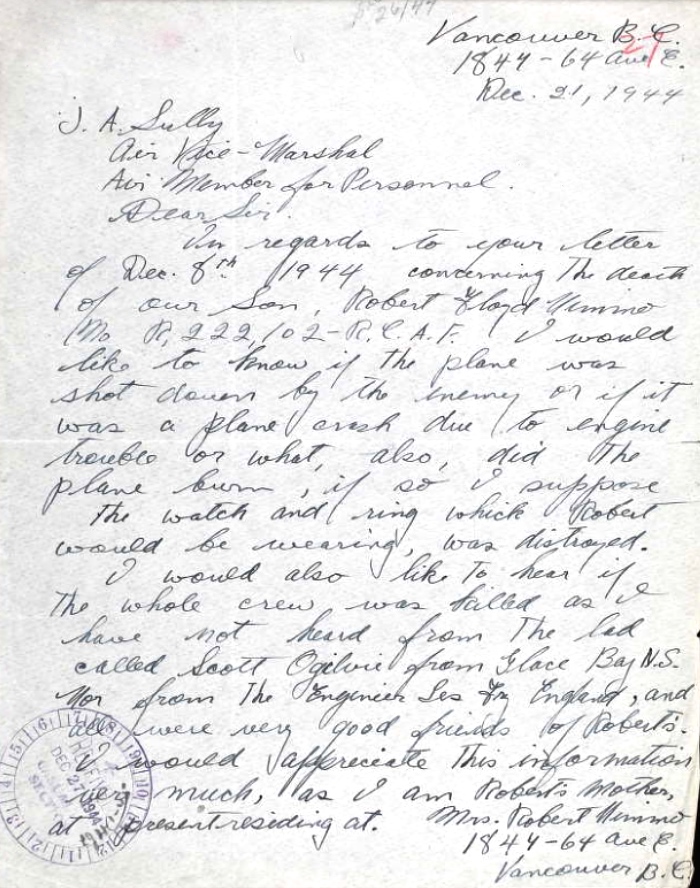 26/44
Vancouver B.C.
27
1847-64 Ave E.
Dec. 21, 1944
J. A. Sully
Air Vice-Marshal
Air Member for Personnel.
Dear Sir.
In regards to your letter
of Dec. 8th 1944 concerning The death
of our Son, Robert Floyd Nimmo
(No R,222,102-R.C.A.F. I would
like to know if the plane was
shot down by the enemy or if it
was a plane crash due to engine
trouble or what, also, did The
plane burn, if so I suppose
The watch and ring which Robert
would be wearing, was distroyed.
I would also like To hear if
The whole crew was killed as I
have not heard from The lad
called Scott Ogilvie from Glace Bay N.S.
Nor from The Engineer Les Fry England, and
all were very good friends of Roberts.
I would appreciate This information
very much, as I am Roberts Mother,
at present residing at. Mrs. Robert Nimmo
1847-64 Ave E.
Vancouver B.C.
DEC 27 1944